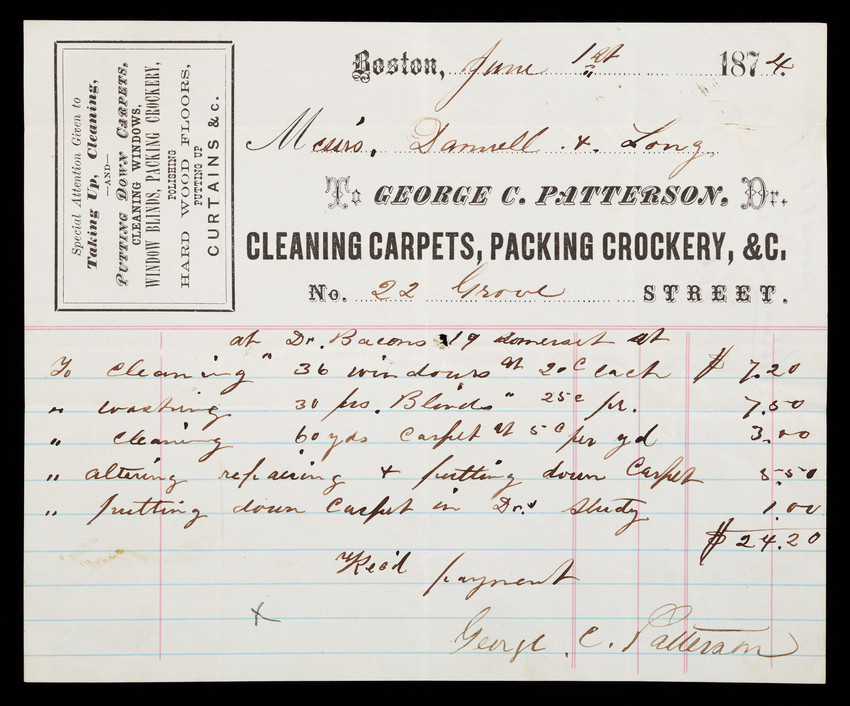 Special Attention Given to
Taking Up, Cleaning,
—AND—
PUTTING DOWN CARPETS,
CLEANING WINDOWS,
WINDOW BLINDS, PACKING CROCKERY,
POLISHING
HARD WOOD FLOORS,
PUTTING UP
CURTAINS & c.
Boston, June 1st 1874.
Messrs. Damrell & Long,
To GEORGE C. PATTERSON, Dr.
CLEANING CARPETS, PACKING CROCKERY, &C.
No. 22 Grove STREET.
at Dr. Bacons 19 Somerset st
To cleaning 36 windows at 20c each $ 7.20
" washing 30 prs. Blinds " 25c pr. 7.50
" cleaning 60 yds carpet at 5c per yd 3.00
" altering repairing & putting down Carpet 5.50
" putting down Carpet in Dr.s study 1.00
$ 24.20
Rec'd payment
George C. Patterson